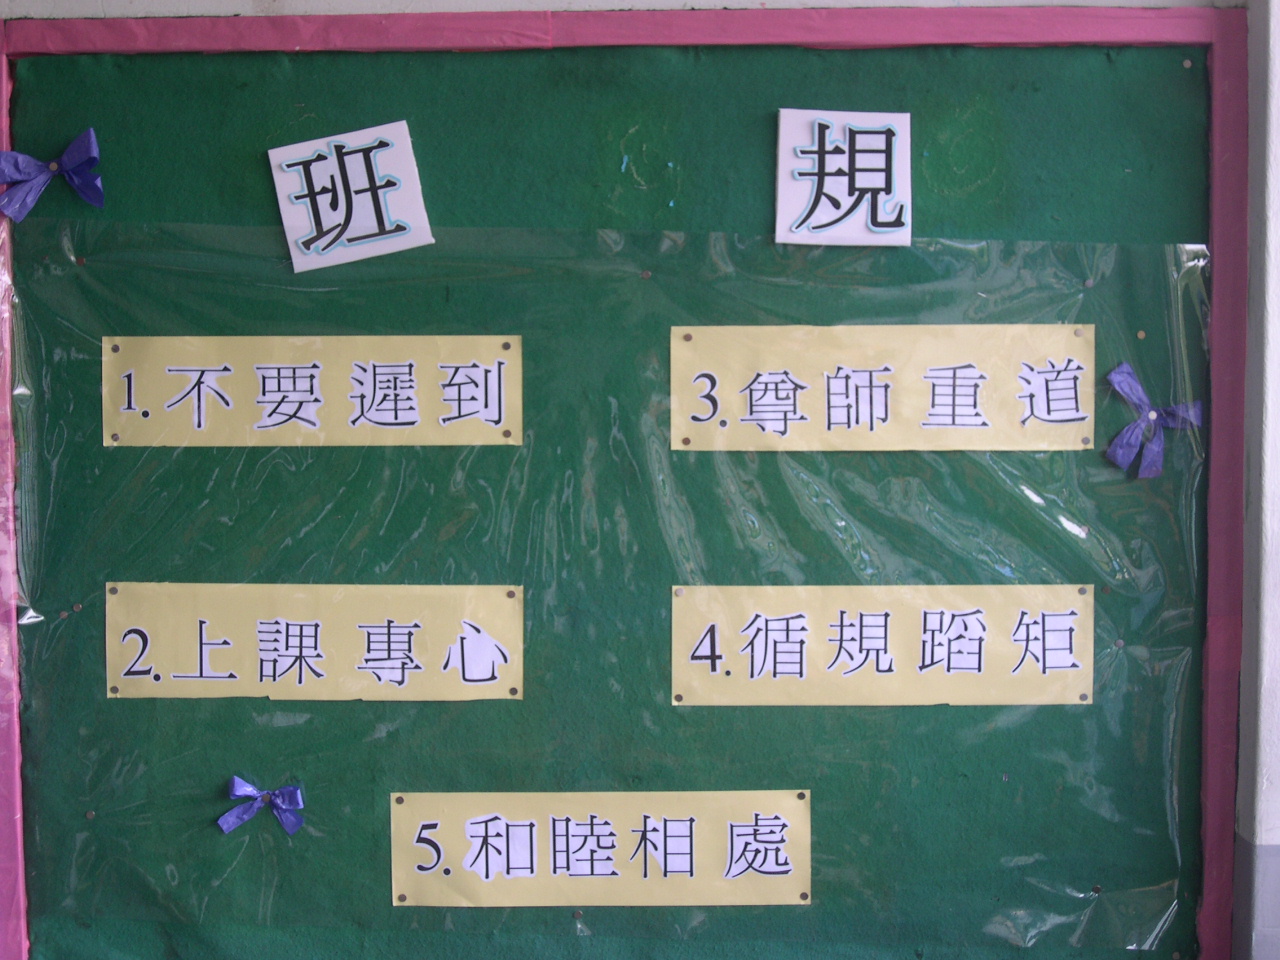 班規
1.不要遲到
2.上課專心
3.尊師重道
4.循規蹈矩
5.和睦相處